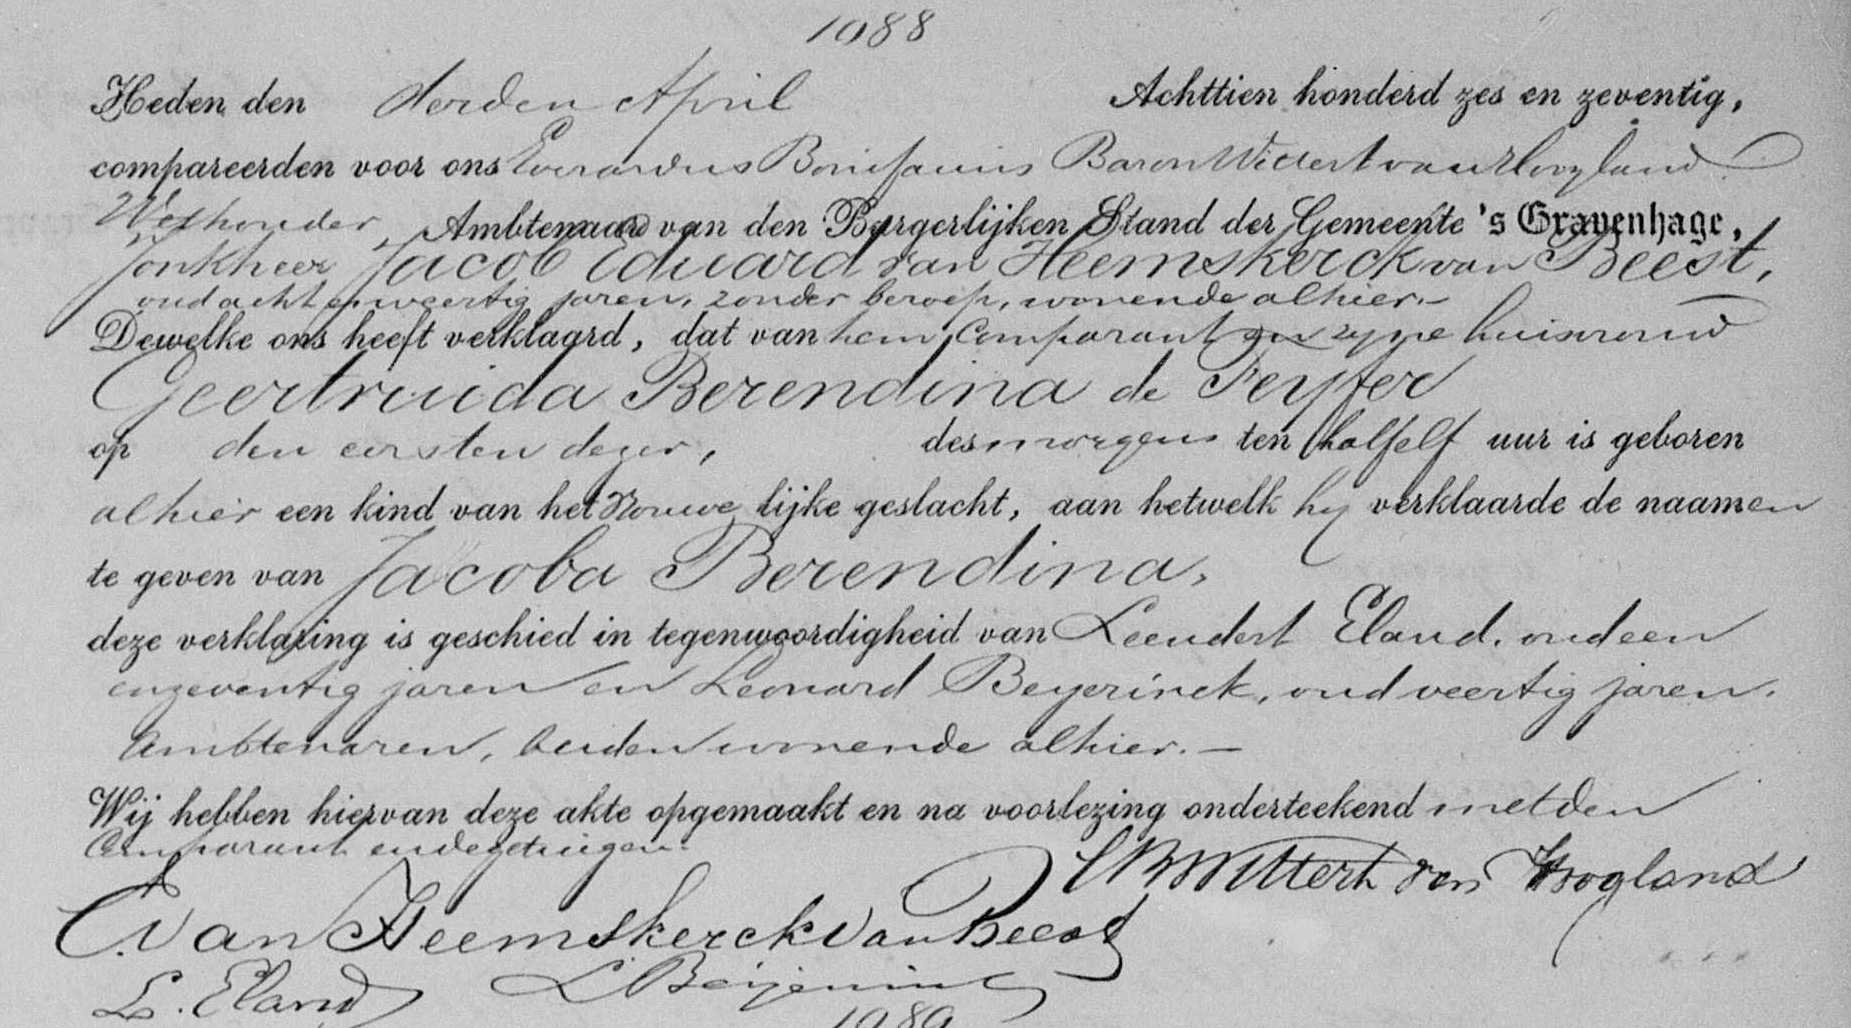 1088
Heden den derden April Achttien honderd zes en zeventig,
compareerden voor ons Everardus Bonifacius Baron Wittert van Hoogland
Wethouder, Ambtenaar van den Burgerlijken Stand der Gemeente 's Gravenhage,
Jonkheer Jacob Eduard van Heemskerck van Beest,
oud achtenveertig jaren, zonder beroep, wonende alhier.-
Dewelke ons heeft verklaard, dat van hem Comparant en zyne huisvrouw
Geertruida Berendina de Feyfer
op den eersten dezer, des morgens ten half elf uur is geboren
alhier een kind van het Vrouwe lijke geslacht, aan hetwelk hy verklaarde de naamen
te geven van Jacoba Berendina,
deze verklaring is geschied in tegenwoordigheid van Leendert Eland, oud een
enzeventig jaren en Leonard Beyerinck, oud veertig jaren,
Ambtenaren, beiden wonende alhier.-
Wij hebben hiervan deze akte opgemaakt en na voorlezing onderteekend met den
Comparant en de getuigen.
EB Wittert van Hoogland
E. van Heemskerck van Beest
L. Eland L Beijerinck
1089